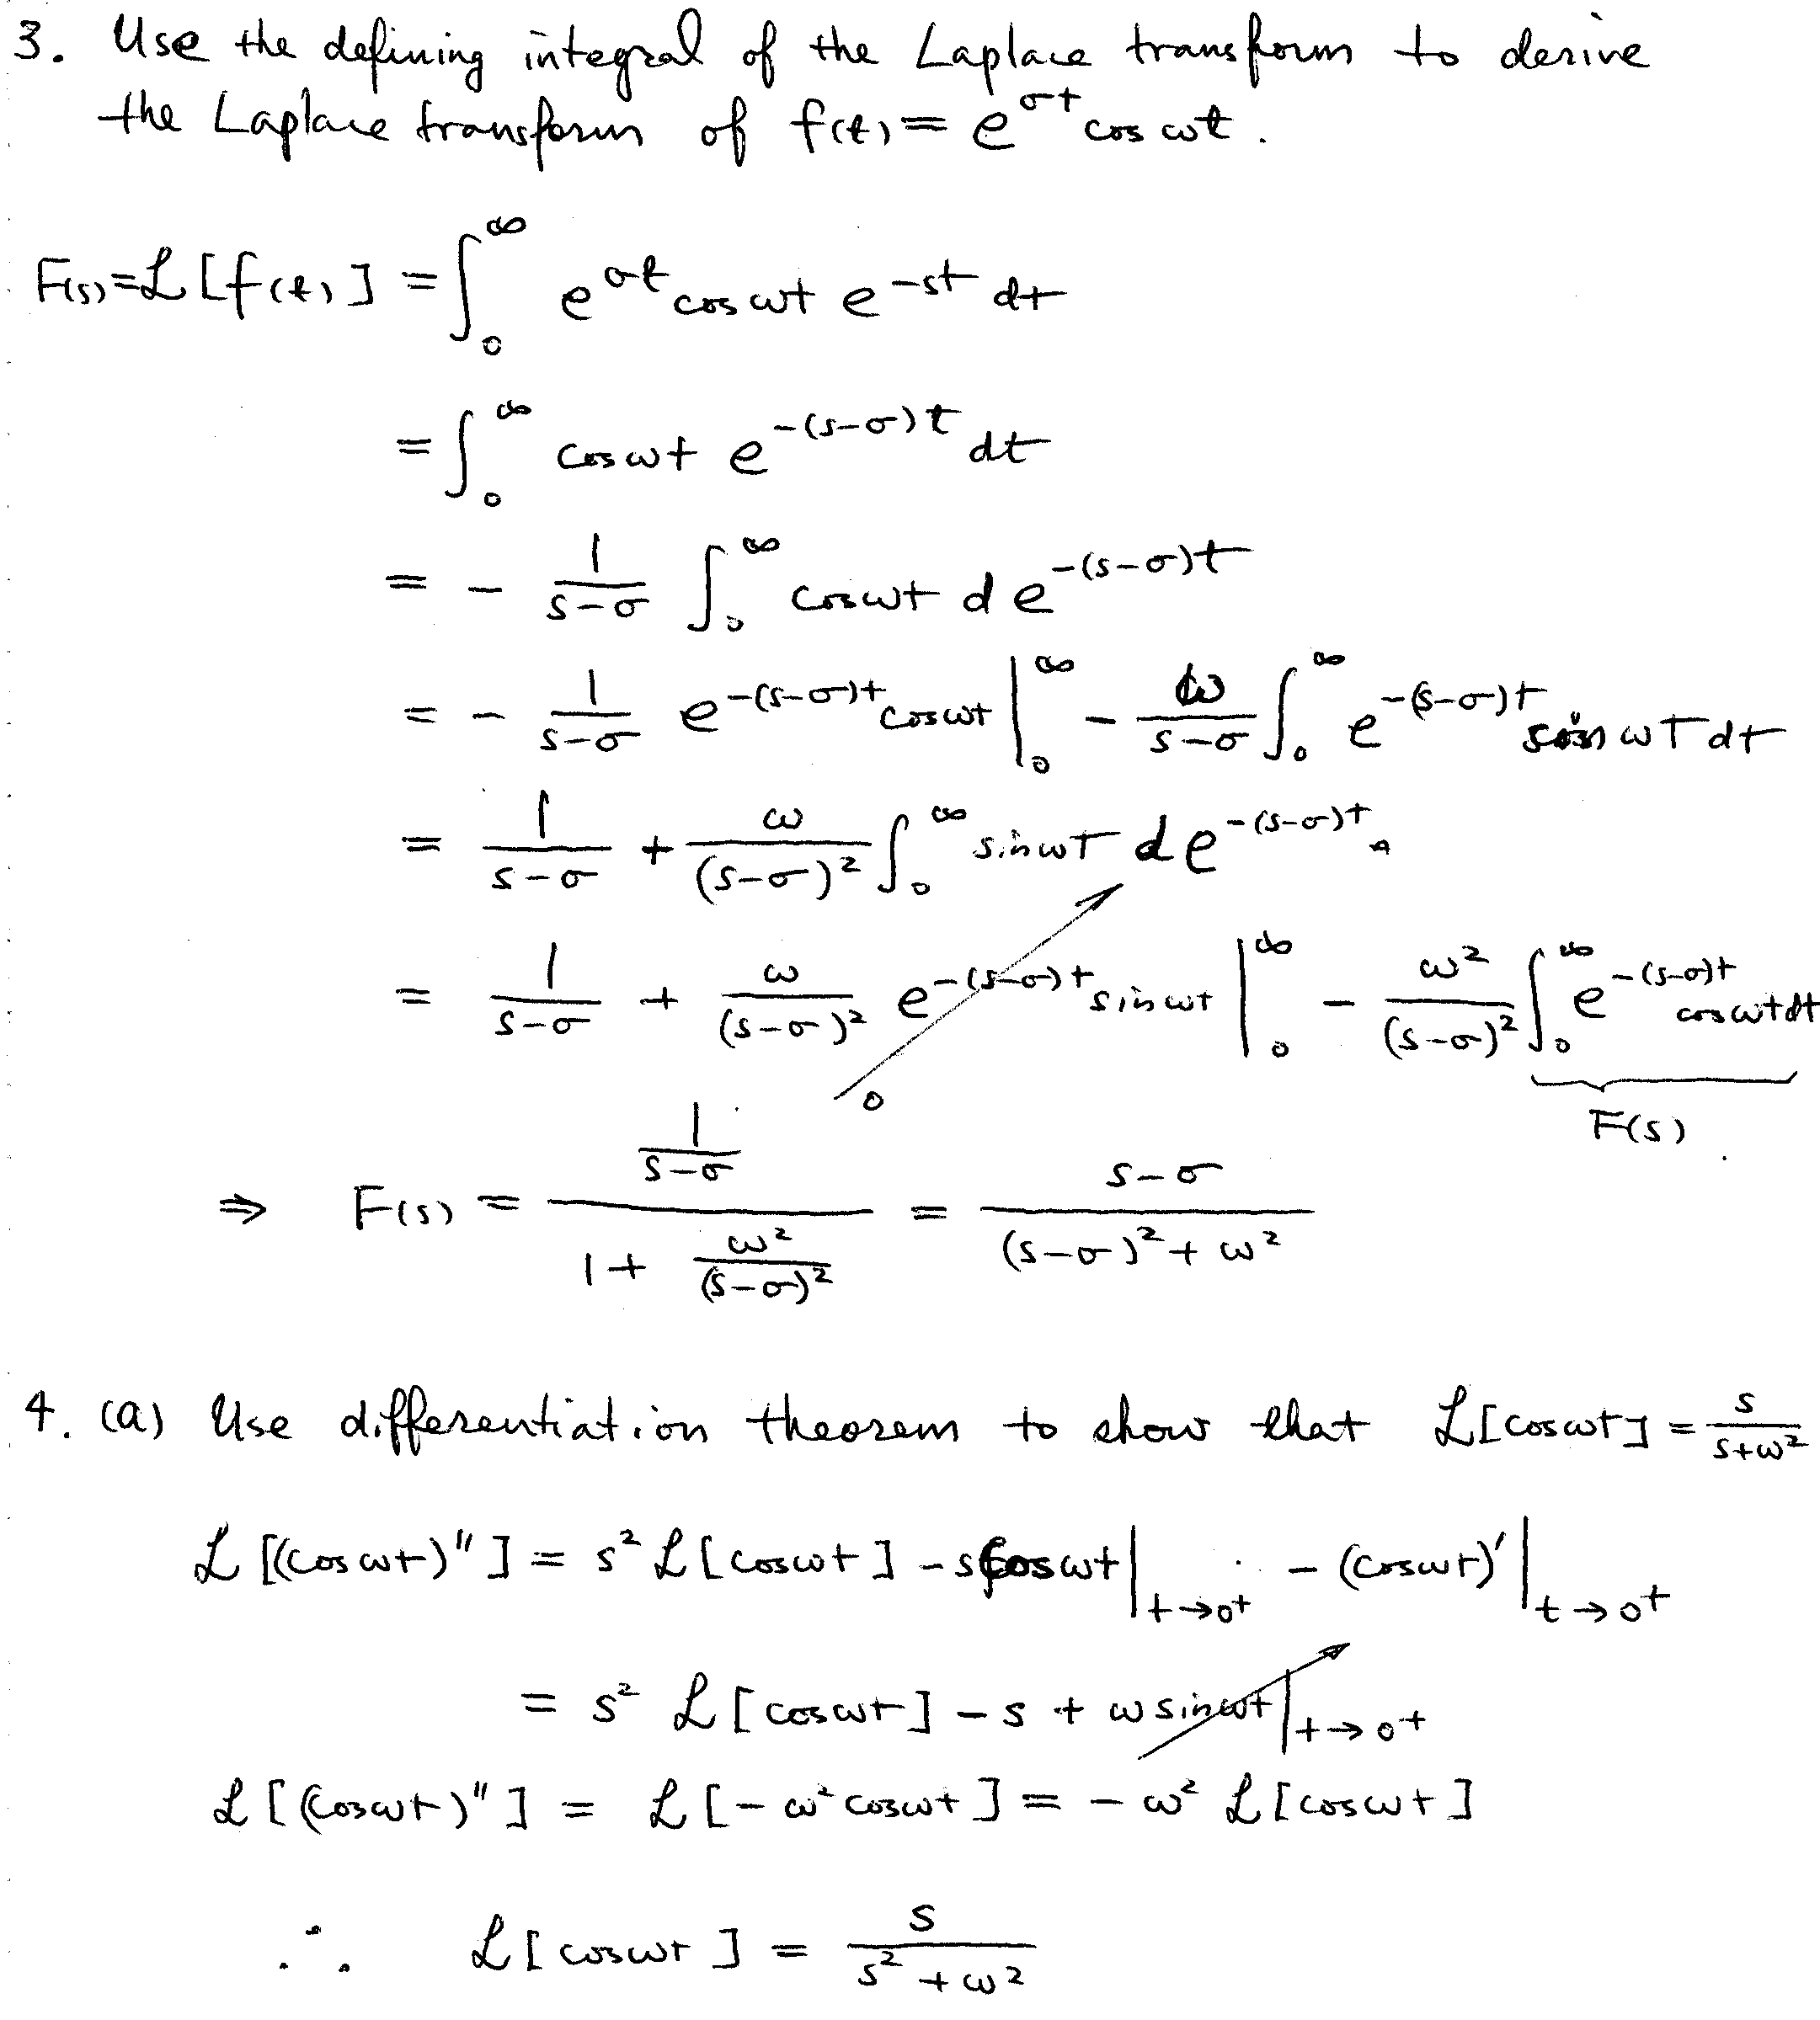 3. Use the defining integral of the Laplace transform to derive
the Laplace transform of f(t) = e^{σt} cos ωt.
F(s) = ℒ[f(t)] = ∫_0^∞ e^{σt} cos ωt e^{-st} dt
= ∫_0^∞ cos ωt e^{-(s-σ)t} dt
= - 1/(s-σ) ∫_0^∞ cos ωt d e^{-(s-σ)t}
= - 1/(s-σ) e^{-(s-σ)t} cos ωt |_0^∞ - ω/(s-σ) ∫_0^∞ e^{-(s-σ)t} sin ωt dt
= 1/(s-σ) + ω/(s-σ)² ∫_0^∞ sin ωt d e^{-(s-σ)t}
= 1/(s-σ) + ω/(s-σ)² e^{-(s-σ)t} sin ωt |_0^∞ - ω²/(s-σ)² ∫_0^∞ e^{-(s-σ)t} cos ωt dt
0
F(s)
⇒ F(s) = (1/(s-σ))/(1 + ω²/(s-σ)²) = (s-σ)/((s-σ)² + ω²)
4. (a) Use differentiation theorem to show that ℒ[cos ωt] = s/(s+ω²)
ℒ[(cos ωt)''] = s² ℒ[cos ωt] - s cos ωt |_{t→0+} - (cos ωt)' |_{t→0+}
= s² ℒ[cos ωt] - s + ω sin ωt |_{t→0+}
ℒ[(cos ωt)''] = ℒ[-ω² cos ωt] = -ω² ℒ[cos ωt]
∴ ℒ[cos ωt] = s/(s² + ω²)